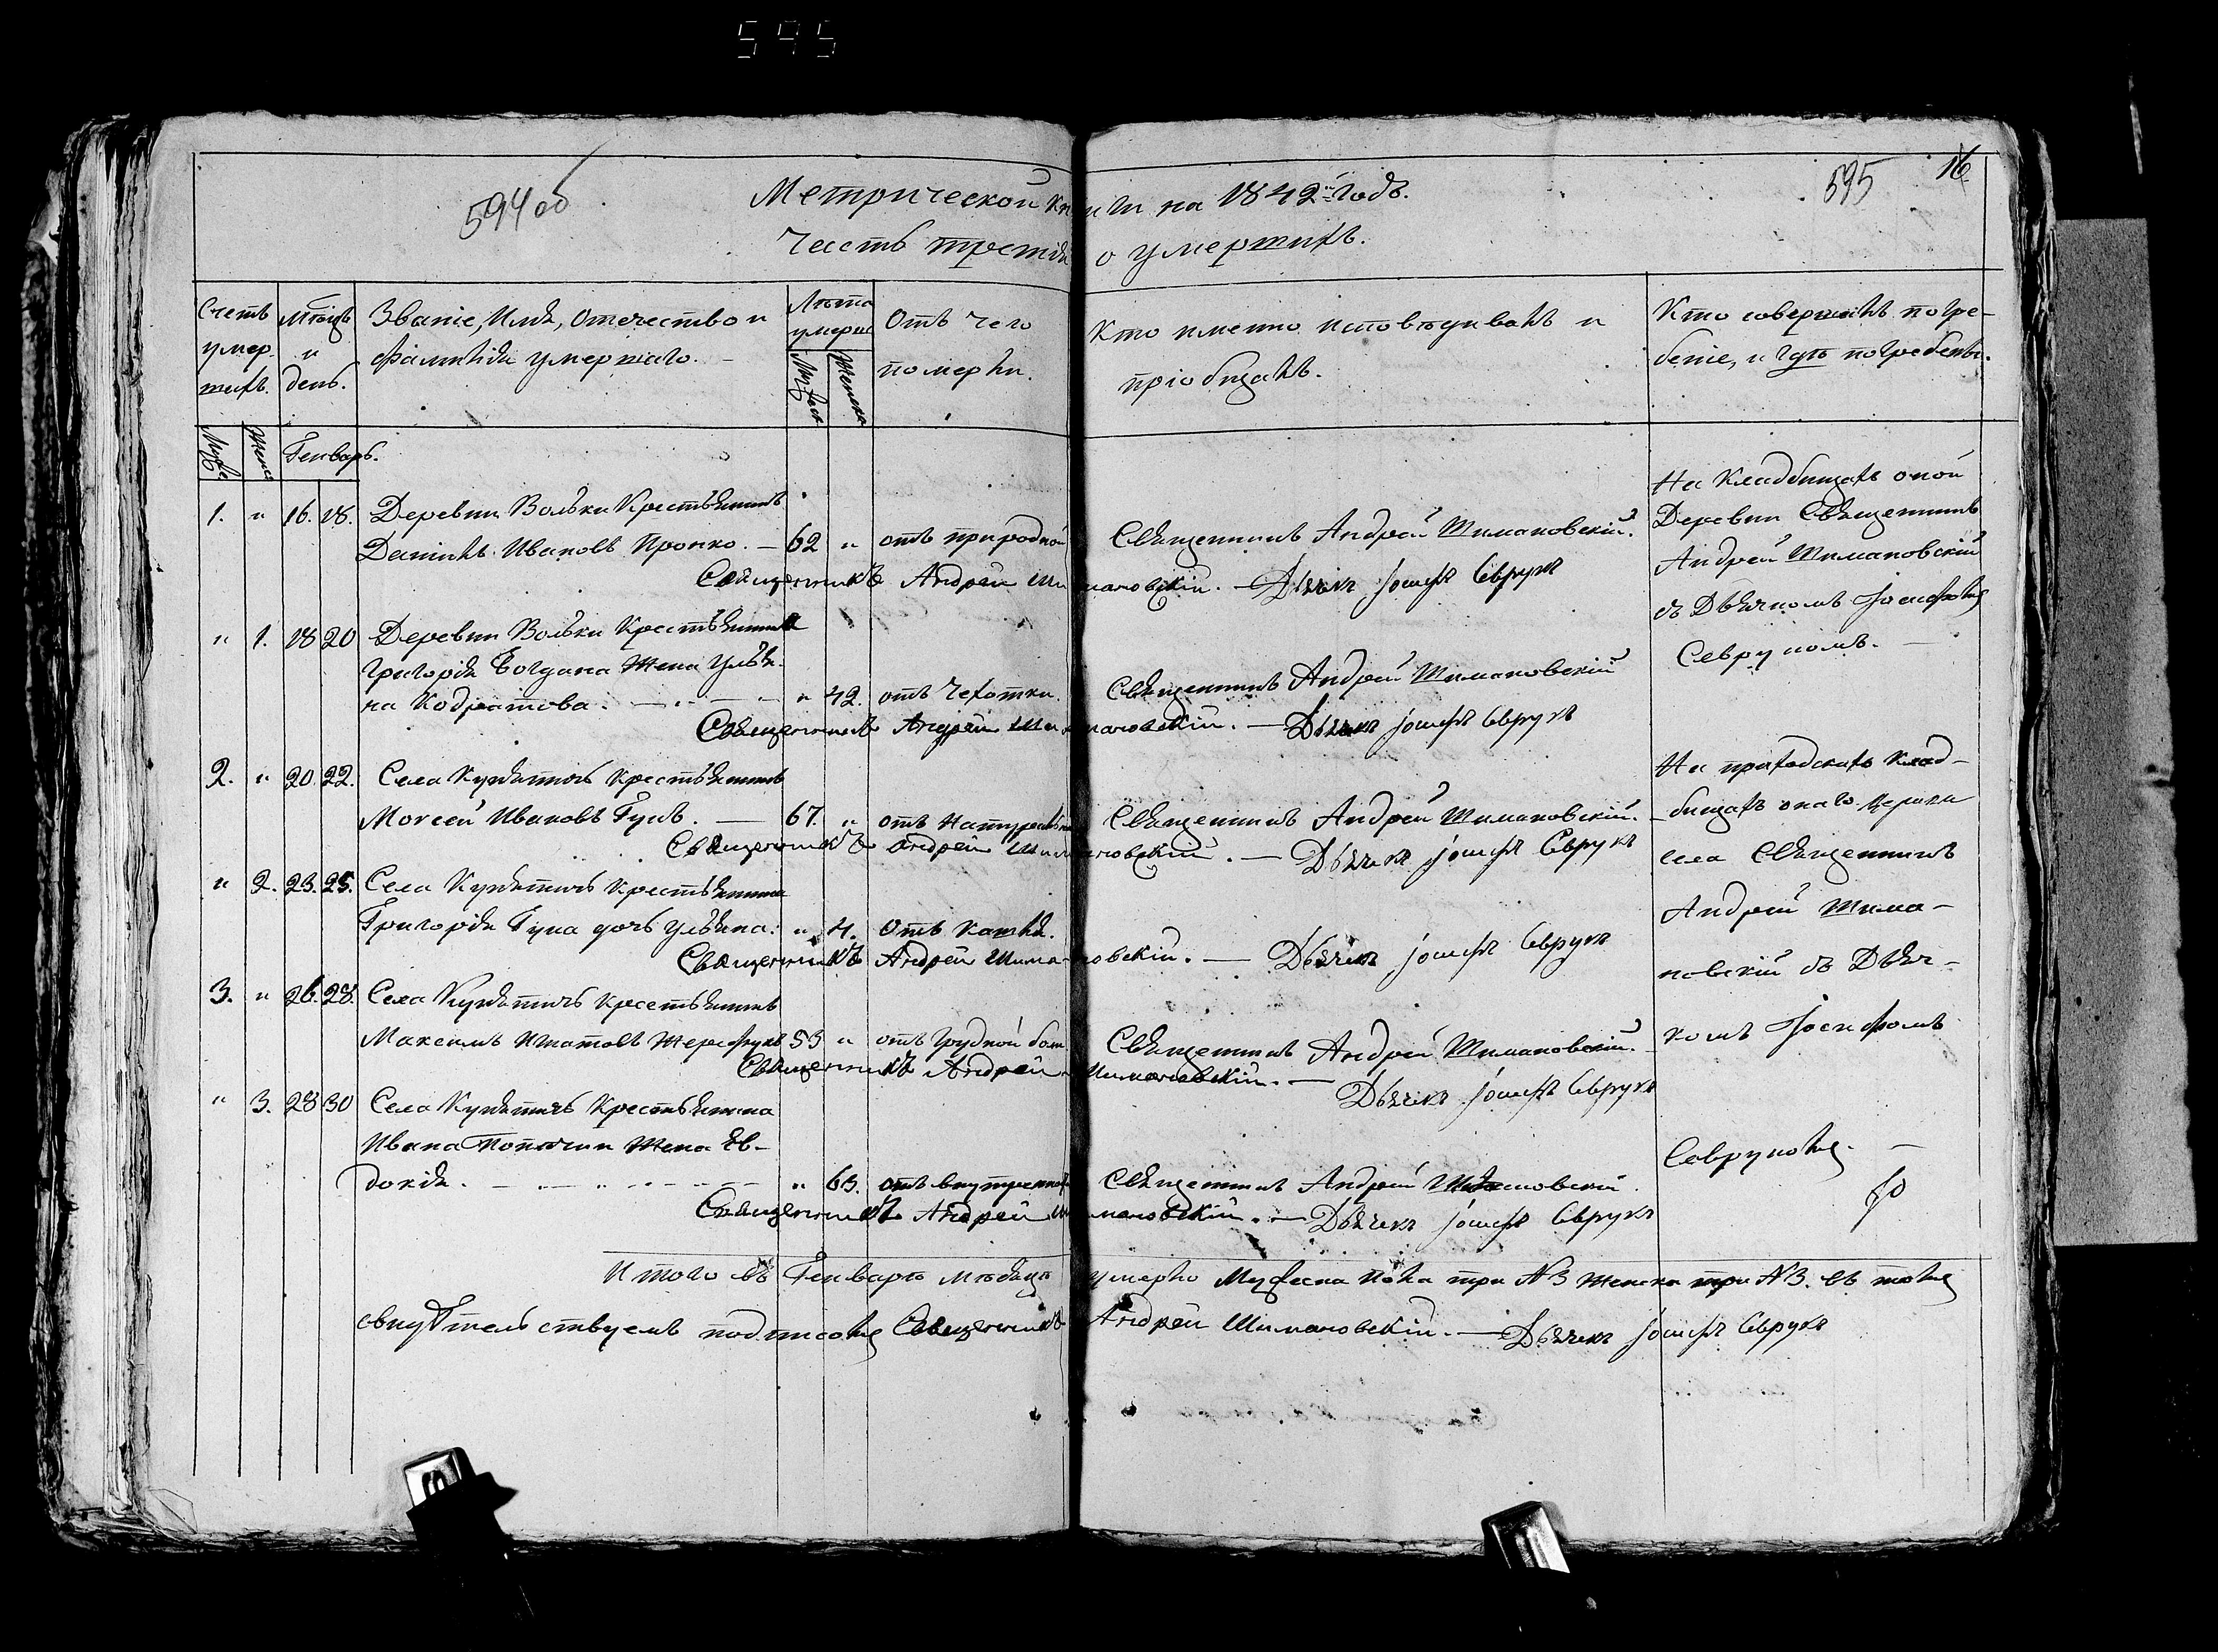 595
594 об
595
16
Метрической книги на 1842й Годъ.
Часть третія о умершихъ.
Счетъ умер-шихъ.
Мѣсяцъ и день.
Званіе, Имя, Отечество и фамилія умершаго.
Лѣта умерш
Мужеск
Женска
Отъ чего померли.
Кто именно исповѣдывалъ и пріобщалъ.
Кто совершалъ погре-
беніе, и гдѣ погребены.
Муже
Женс
Генварь.
1. " 16. 18. Деревни Вольки Крестьянинъ
Данилъ Ивановъ Пронко. — 62 " отъ природной Священникъ Андрей Шимановскій.
Священникъ Андрей Шимановскій. — Дьячекъ Іосифъ Серукъ
На Кладбищахъ оной
Деревни Священникъ
Андрей Шимановскій
съ Дьячкомъ Іосифомъ
Севрукомъ. —
" 1. 18 20 Деревни Вольки Крестьянина
Григорія Богдана Жена Улья-
на Кодратова. — " 42. отъ Чехотки. Священникъ Андрей Шимановскій
Священникъ Андрей Шимановскій. — Дьячекъ Іосифъ Севрукъ
2. " 20. 22. Села Крестьянинъ
Моисей Ивановъ Гукъ. — 67. " отъ Натуральн Священникъ Андрей Шимановскій.
Священникъ Андрей Шимановскій. — Дьячекъ Іосифъ Севрукъ
На приходскихъ Клад-
бищахъ онаго Церкви
села Священникъ
Андрей Шима-
новскій съ Дьяч-
комъ Іосифомъ
Севрукомъ. —
" 2. 23. 25. Села Крестьянина
Григорія Гука дочь Ульяна. " 4. Отъ Кашля.
Священникъ Андрей Шимановскій. — Дьячекъ Іосифъ Севрукъ
3. " 26. 28. Села Кресетьянинъ
Максимъ Игнатовъ 53 " отъ Грудной бол Священникъ Андрей Шимановскій.
Священникъ Андрей Шимановскій. — Дьячекъ Іосифъ Севрукъ
" 3. 28 30 Села Крестьянина
Ивана Жена Ев-
докія. — " 63. отъ внутренной Священникъ Андрей Шимановскій
Священникъ Андрей Шимановскій. — Дьячекъ Іосифъ Севрукъ
Итого въ Генварѣ мѣсяцѣ умерло Мужеска пола три №3 женска три №3. въ томъ
свидѣтельствуемъ подписомъ Священникъ Андрей Шимановскій. — Дьячекъ Іосифъ Севрукъ